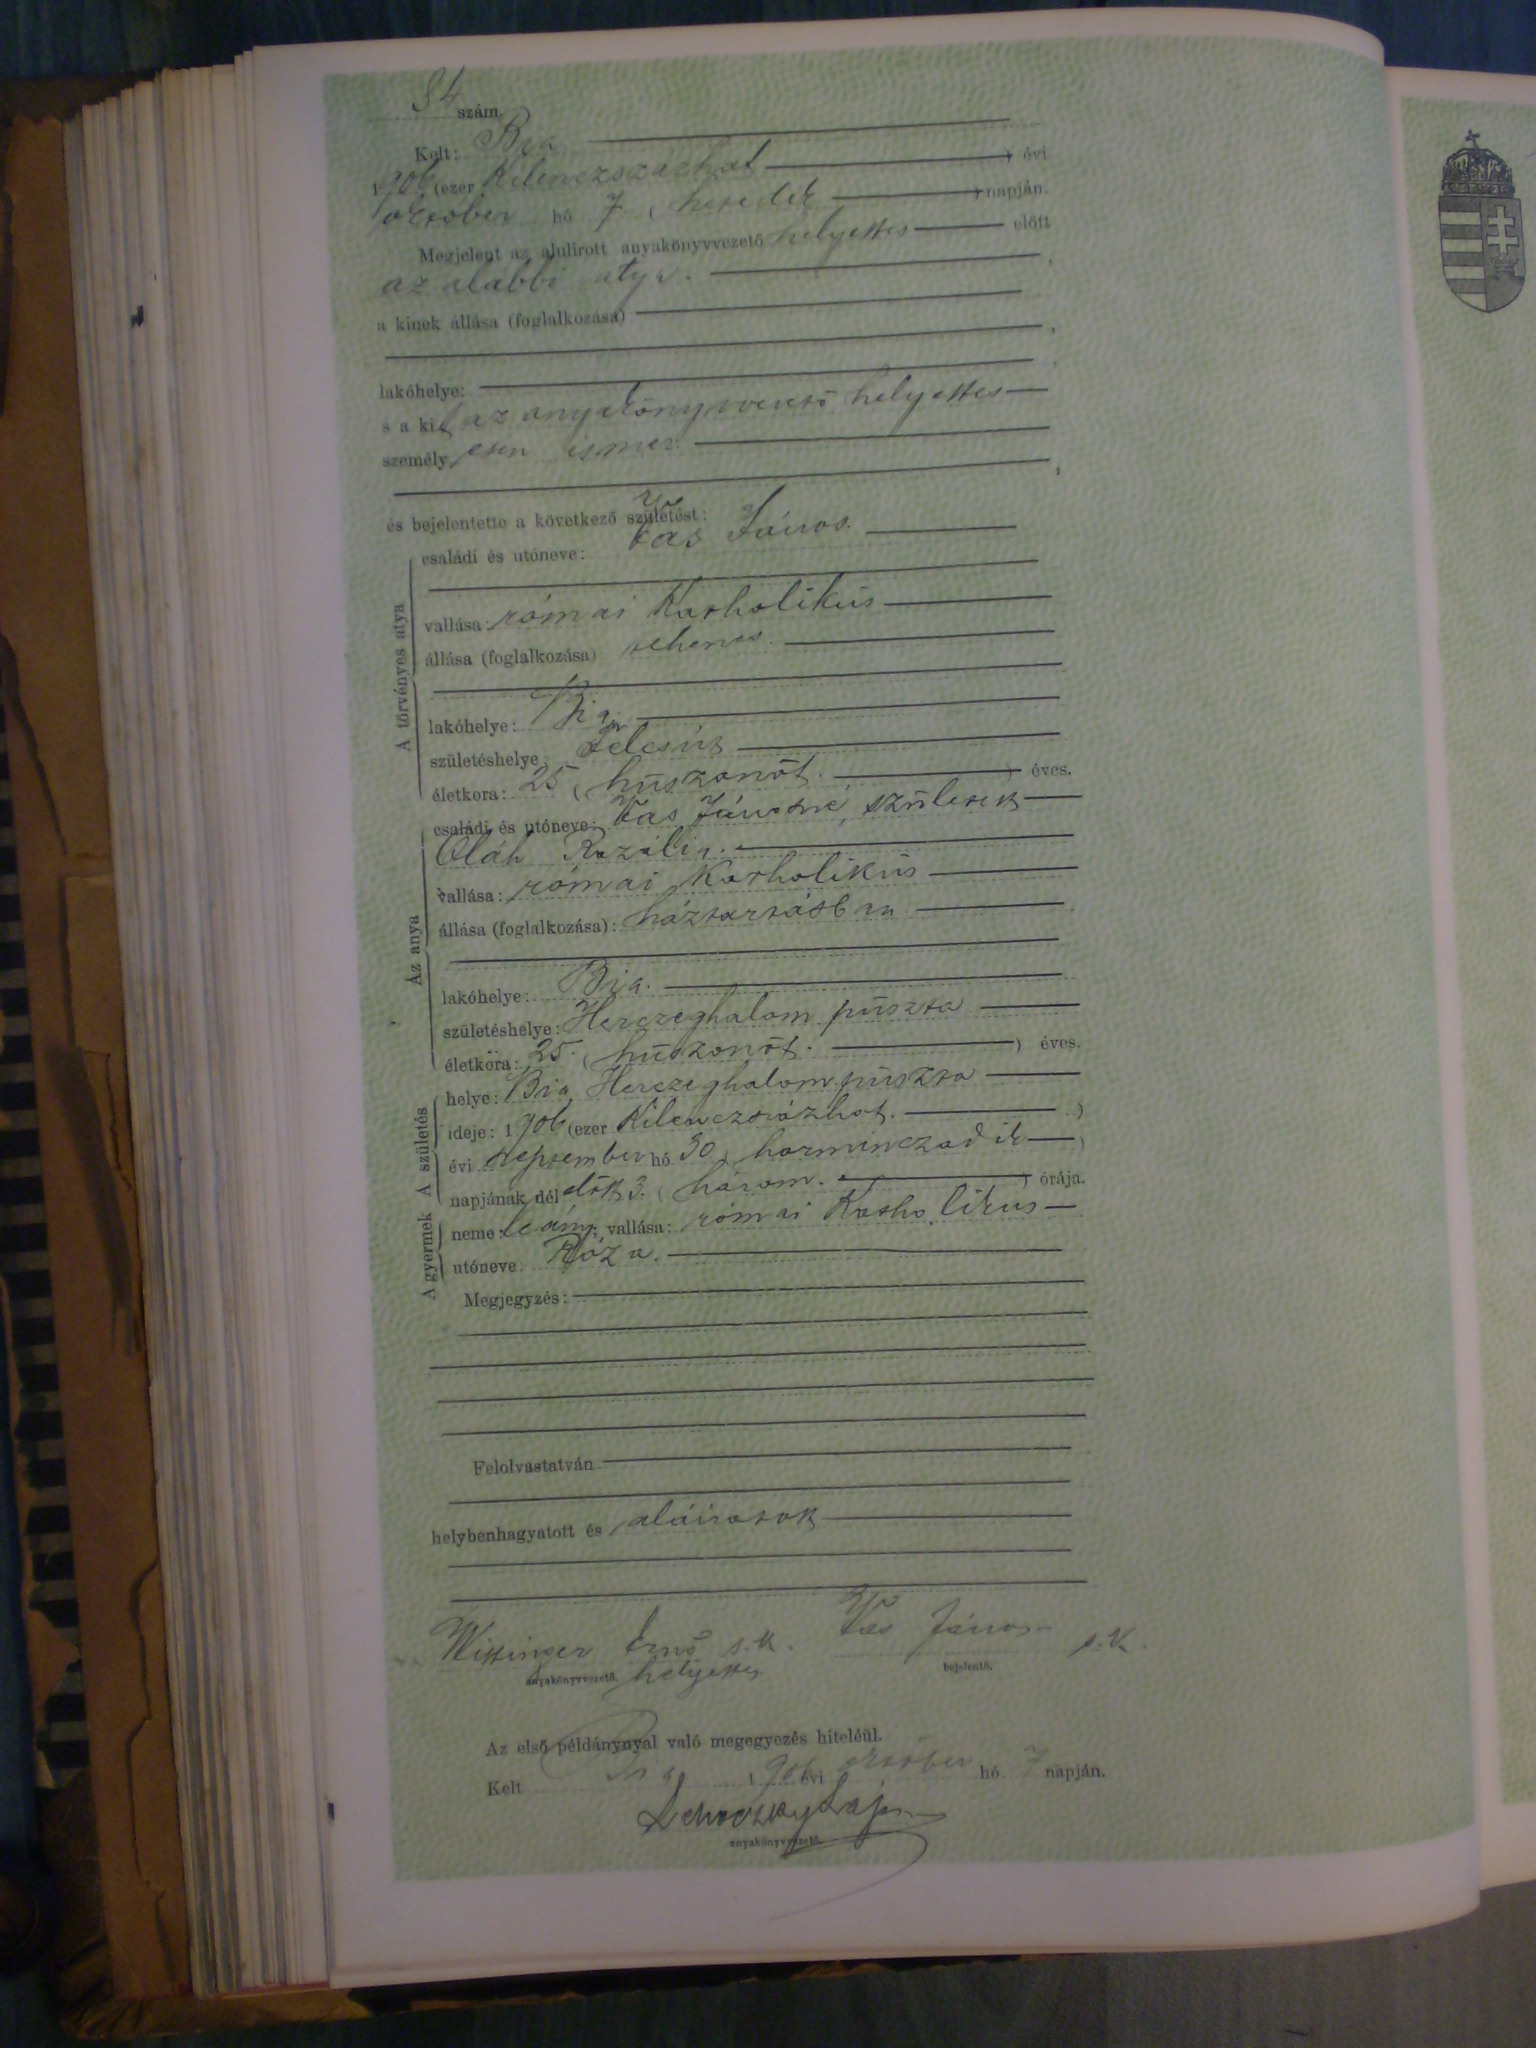 34 szám.
Kelt: Bia
1906 (ezer kilenczszázhat) évi
október hó 7 (hetedik) napján.
Megjelent az alulirott anyakönyvvezető helyettes előtt
az alábbi atya.
a kinek állása (foglalkozása)
lakóhelye:
s a kit az anyakönyvvezető helyettes
személyesen ismer
és bejelentette a következő születést:
A törvényes atya
családi és utóneve: Vas János.
vallása: római katholikus
állása (foglalkozása)
lakóhelye: Bia
születéshelye: Felcsút
életkora: 25 (huszonöt.) éves.
Az anya
családi és utóneve: Vas Jánosné, született
Oláh Rozália.
vallása: római katholikus
állása (foglalkozása): háztartásban
lakóhelye: Bia.
születéshelye: Herczeghalom puszta
életkora: 25. (huszonöt.) éves.
A születés
helye: Bia Herczeghalom puszta
ideje: 1906 (ezer kilenczszázhat.)
évi september hó 30 (harminczadik)
napjának dél előtt 3. (három.) órája.
A gyermek
neme: leány; vallása: római katholikus
utóneve: Róza.
Megjegyzés:
Felolvastatván
helybenhagyatott és aláiratott
Wittinger Ernő s.k. Vas János s.k.
anyakönyvvezető. helyettes bejelentő.
Az első példánynyal való megegyezés hiteléül.
Kelt Bia 1906 évi október hó 7 napján.
Lajos
anyakönyvvezető.